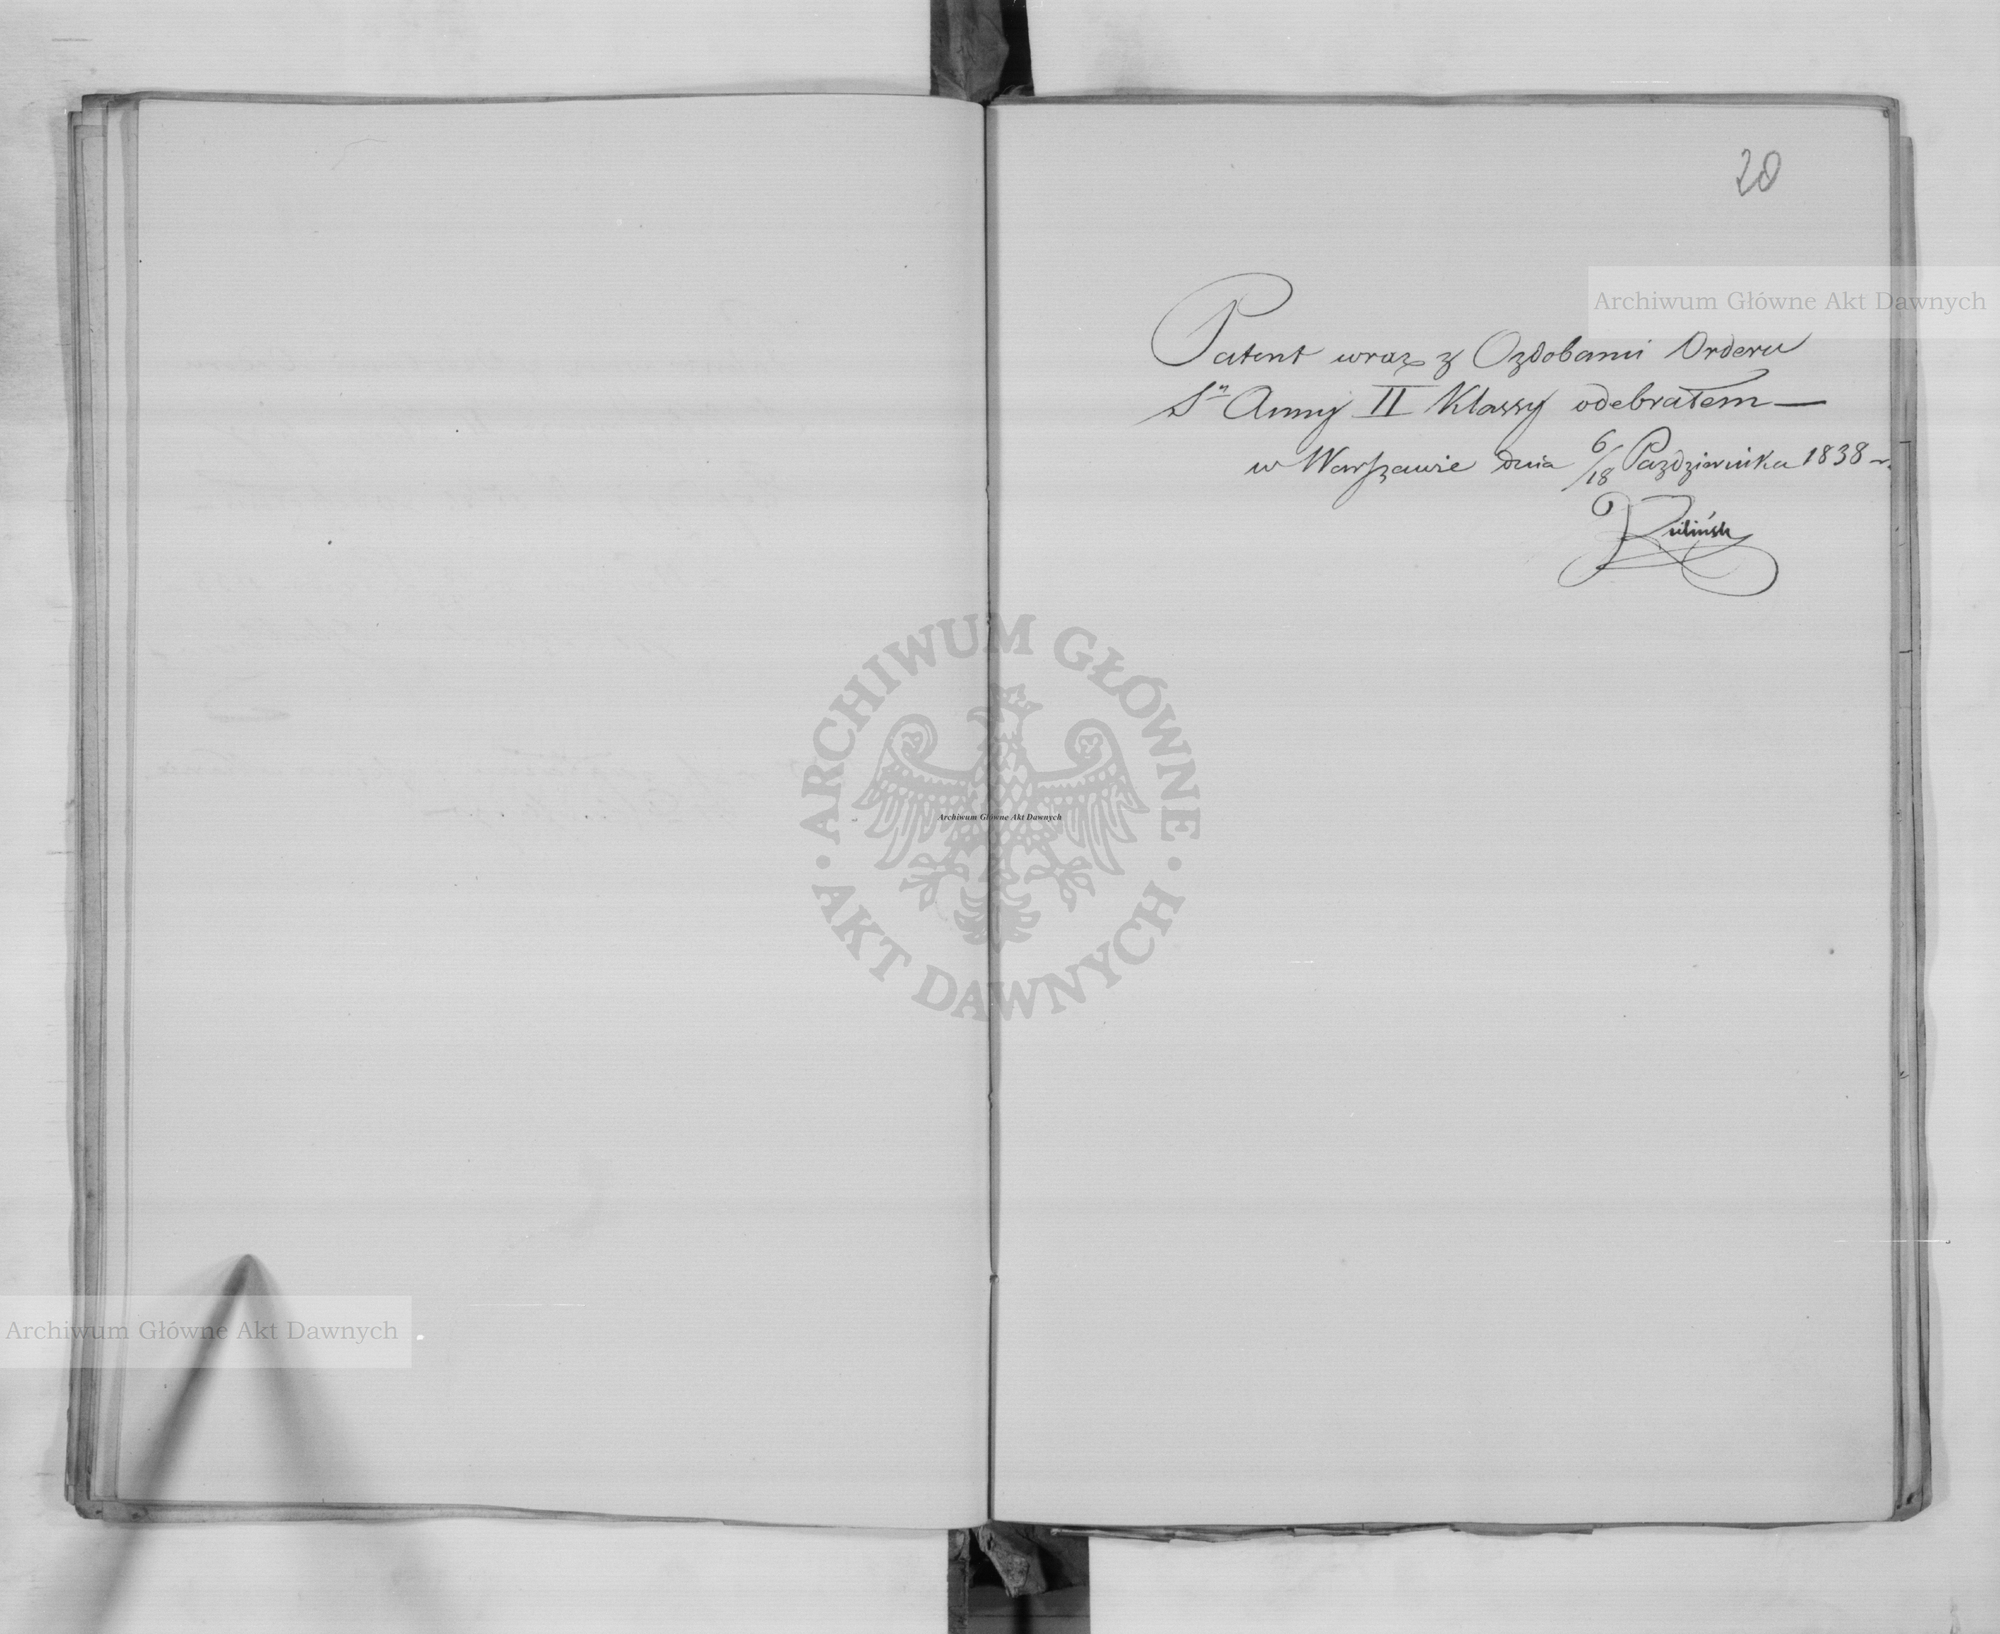 20
Patent wraz z Ozdobami Orderu
Sn Anny II Klassy odebrałem —
w Warszawie dnia 6/18 Pazdziernika 1838 r.
Archiwum Główne Akt Dawnych
ARCHIWUM GŁÓWNE AKT DAWNYCH
Archiwum Główne Akt Dawnych
Archiwum Główne Akt Dawnych